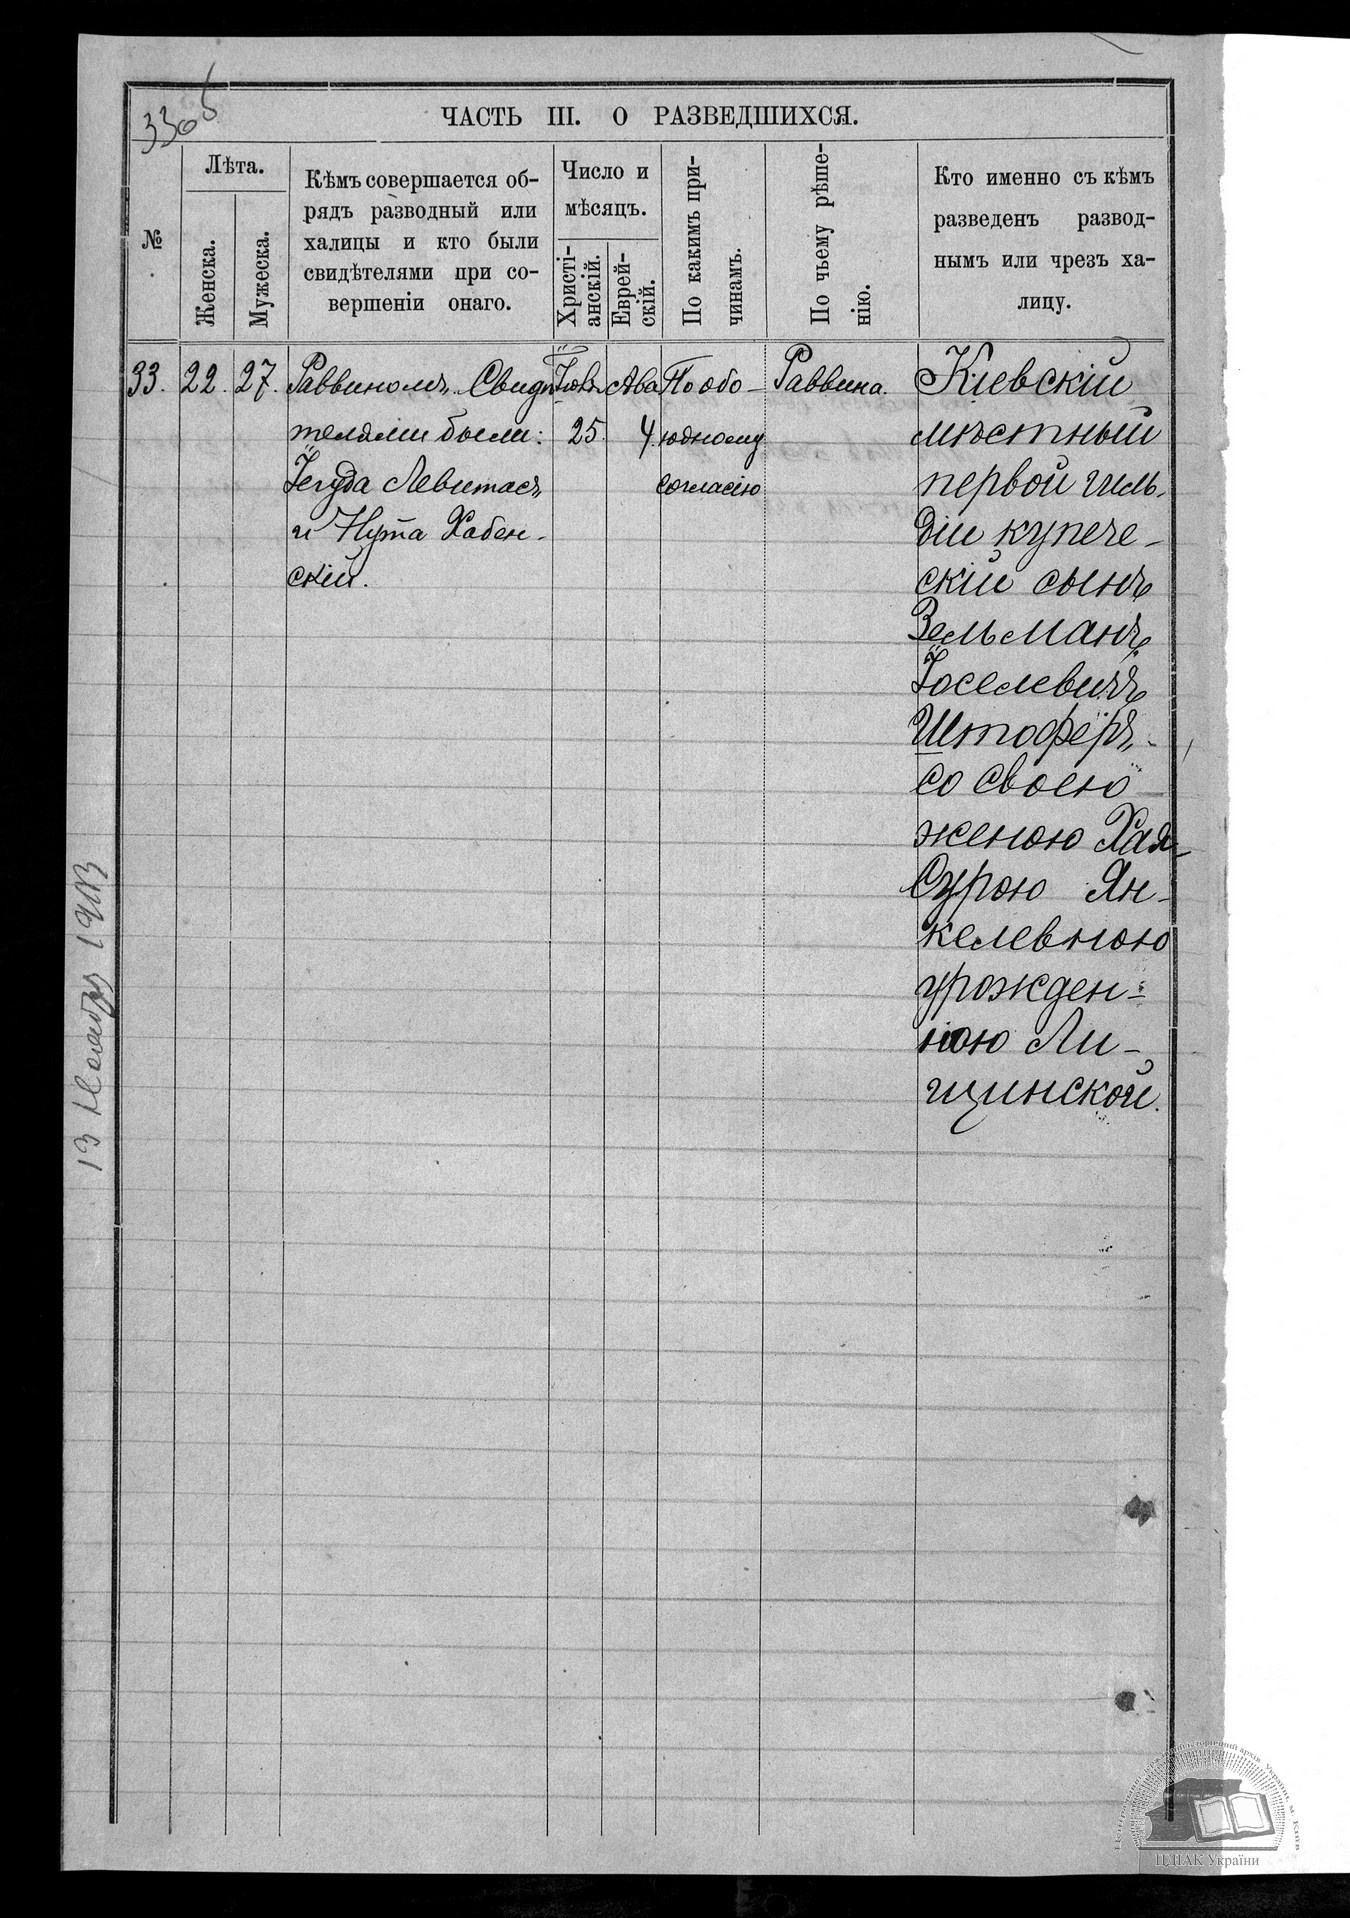 330б
ЧАСТЬ III. О РАЗВЕДШИХСЯ.
№
Лѣта.
Женска.
Мужеска.
Кѣмъ совершается об-
рядъ разводный или
халицы и кто были
свидѣтелями при со-
вершеніи онаго.
Число и
мѣсяцъ.
Христі-
анскій.
Еврей-
скій.
По какимъ при-
чинамъ.
По чьему рѣше-
нію.
Кто именно съ кѣмъ
разведенъ развод-
нымъ или чрезъ ха-
лицу.
33.
22.
27.
Раввиномъ. Свидѣ-
телями были:
Іегуда Левитасъ
и Нута Хабен-
скій.
Іюля
25.
Ава
4.
По обо-
юдному
согласію
Раввина.
Кіевскій
мѣстный
первой гиль-
діи купече-
скій сынъ
Зельманъ
Іоселевичъ
Штоферъ
со своею
женою Хая-
Сурою Ян-
келевною
урожден-
ною Ли-
щинской.
13 Ноября 1913
ЦДІАК України